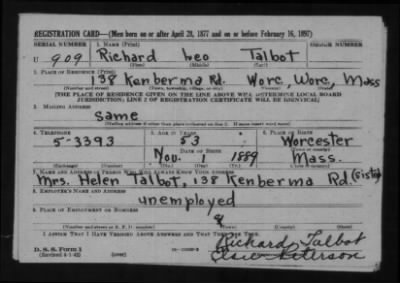 REGISTRATION CARD—(Men born on or after April 28, 1877 and on or before February 16, 1897)
SERIAL NUMBER 1. NAME (Print) ORDER NUMBER
U 909 Richard Leo Talbot
(First) (Middle) (Last)
2. PLACE OF RESIDENCE (Print)
138 Kenberma Rd. Worc, Worc, Mass
(Number and street) (Town, township, village, or city) (County) (State)
[THE PLACE OF RESIDENCE GIVEN ON THE LINE ABOVE WILL DETERMINE LOCAL BOARD
JURISDICTION; LINE 2 OF REGISTRATION CERTIFICATE WILL BE IDENTICAL]
3. MAILING ADDRESS
Same
[Mailing address if other than place indicated on line 2. If same insert word same]
4. TELEPHONE 5. AGE IN YEARS 6. PLACE OF BIRTH
5-3393 53 Worcester
DATE OF BIRTH (Town or county)
Nov. 1 1889 Mass.
(Exchange) (Number) (Mo.) (Day) (Yr.) (State or country)
7. NAME AND ADDRESS OF PERSON WHO WILL ALWAYS KNOW YOUR ADDRESS
Mrs. Helen Talbot, 138 Kenberma Rd. (sister)
8. EMPLOYER'S NAME AND ADDRESS
unemployed
9. PLACE OF EMPLOYMENT OR BUSINESS
(Number and street or R. F. D. number) (Town) (County) (State)
I AFFIRM THAT I HAVE VERIFIED ABOVE ANSWERS AND THAT THEY ARE TRUE.
Richard Talbot
Elsie Peterson
D. S. S. Form 1
(over)